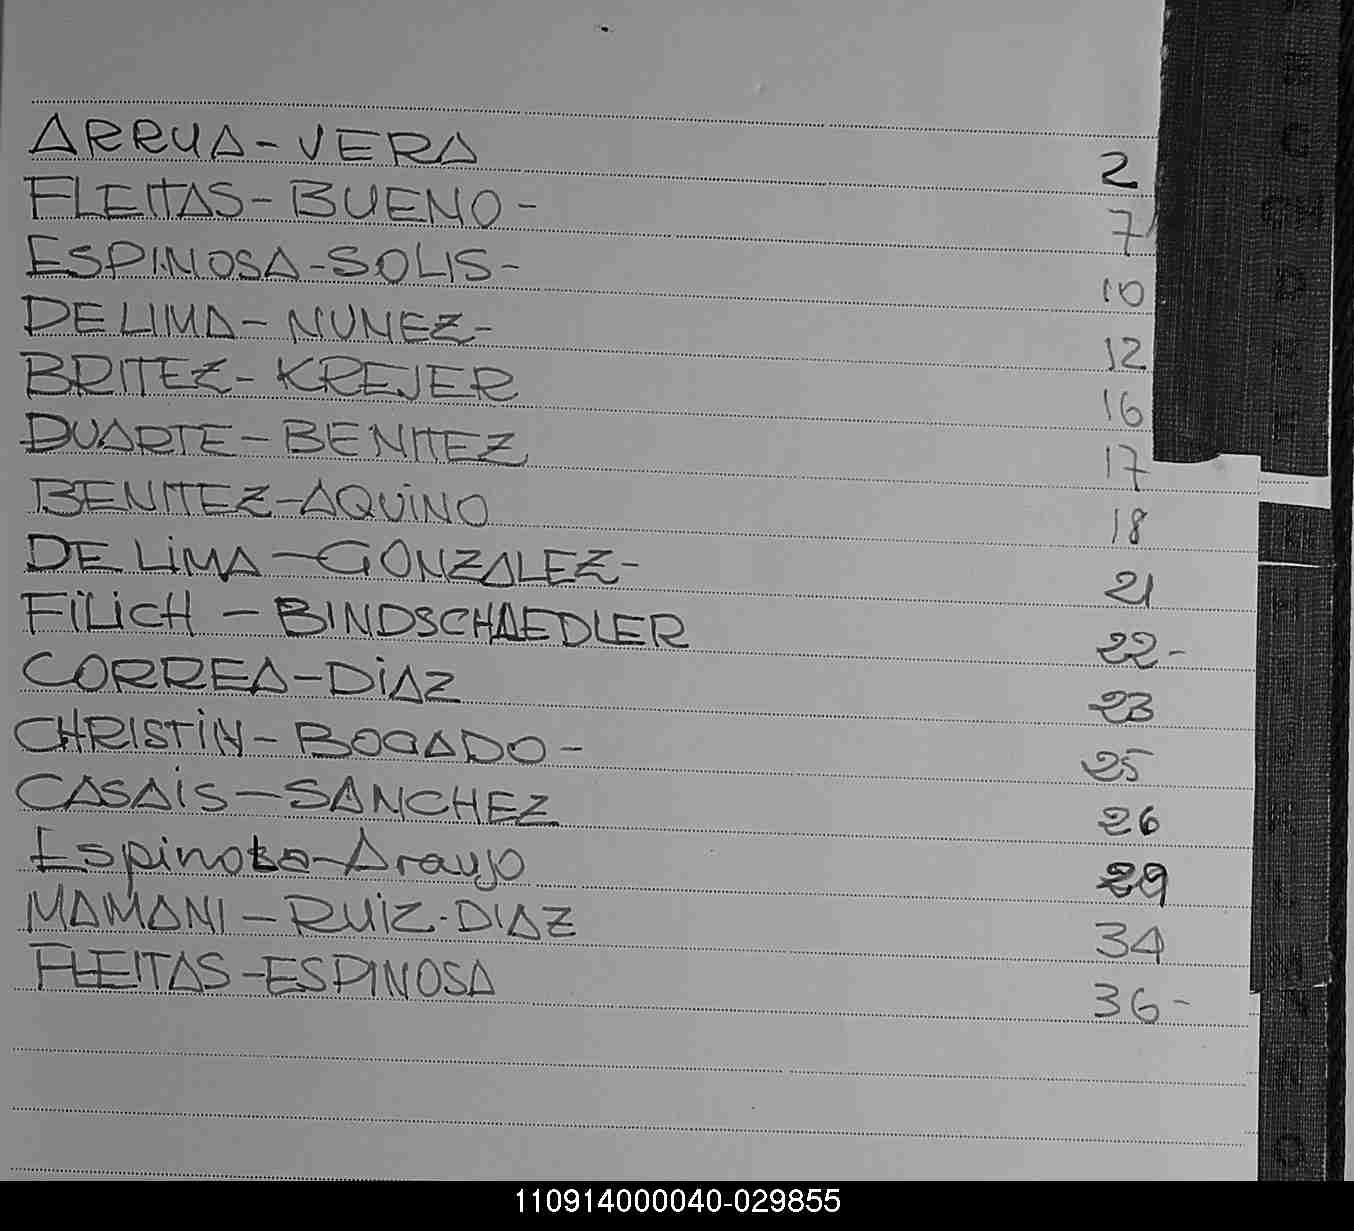 ARRUA-VERA 2
FLEITAS-BUENO- 7
ESPINOSA-SOLIS- 10
DE LIMA-NUNEZ- 12
BRITEZ-KREJER 16
DUARTE-BENITEZ 17
BENITEZ-AQUiNO 18
DE LiMA-GONZALEZ- 21
FiLiCH-BINDSCHAEDLER 22-
CORREA-DiAZ 23
CHRISTiN-BOGADO- 25
CASAiS-SANCHEZ 26
Espinosa-Araujo 29
MAMANI-RUiZ-DIAZ 34
FLEITAS-ESPINOSA 36-
110914000040-029855